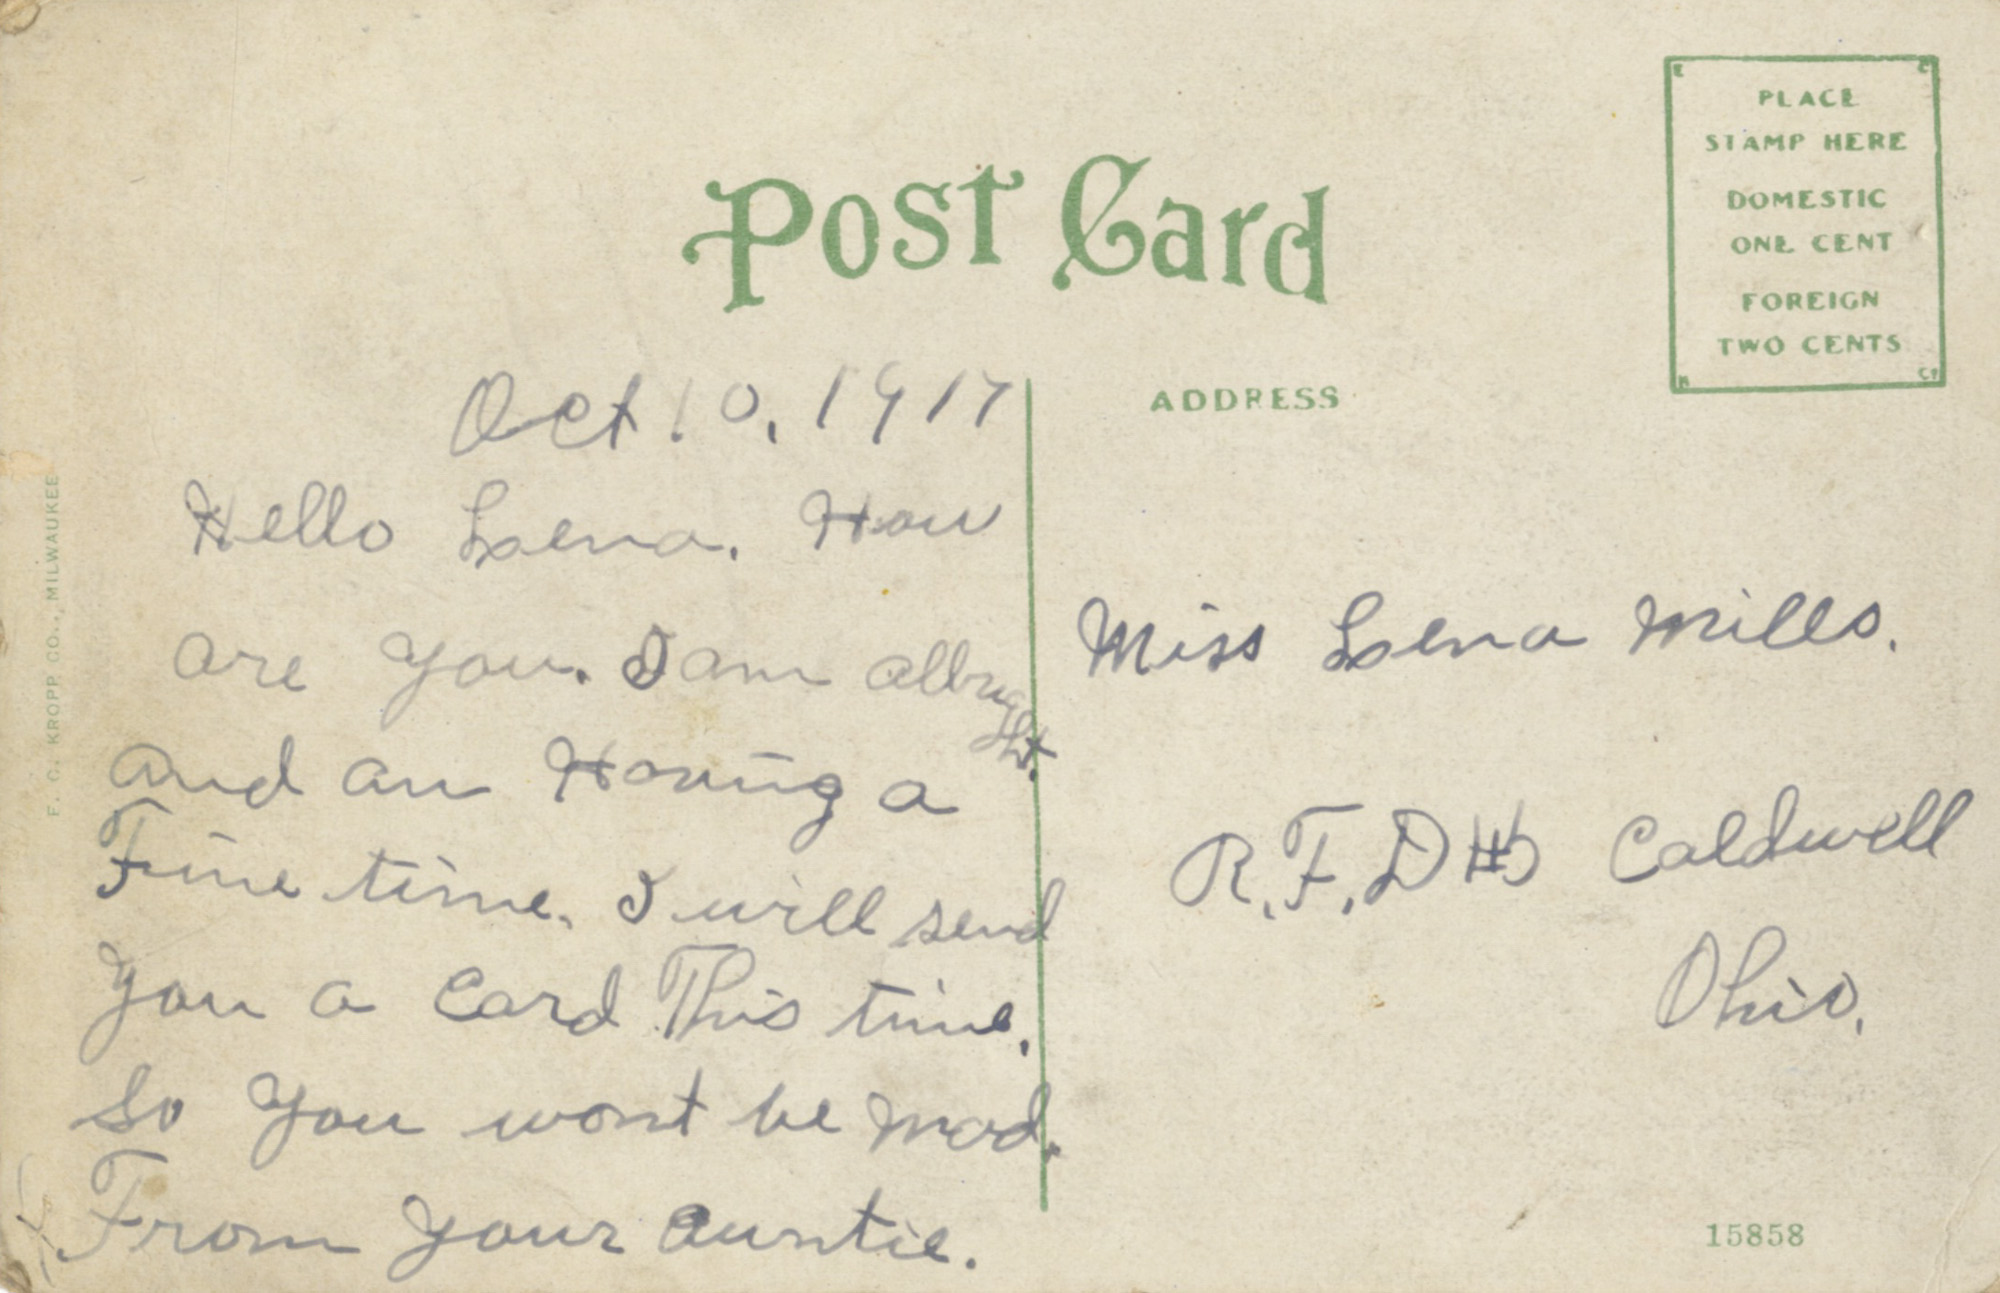 Post Card
PLACE
STAMP HERE
DOMESTIC
ONE CENT
FOREIGN
TWO CENTS
ADDRESS
Oct 10, 1917
Hello Lena. How
are you. I am allbright.
and am Having a
Fine time. I will send
you a Card This time.
So you wont be mad.
From your auntie.
Miss Lena Mills.
R.F.D #5 Caldwell
Ohio.
F. C. KROPP CO., MILWAUKEE
15858